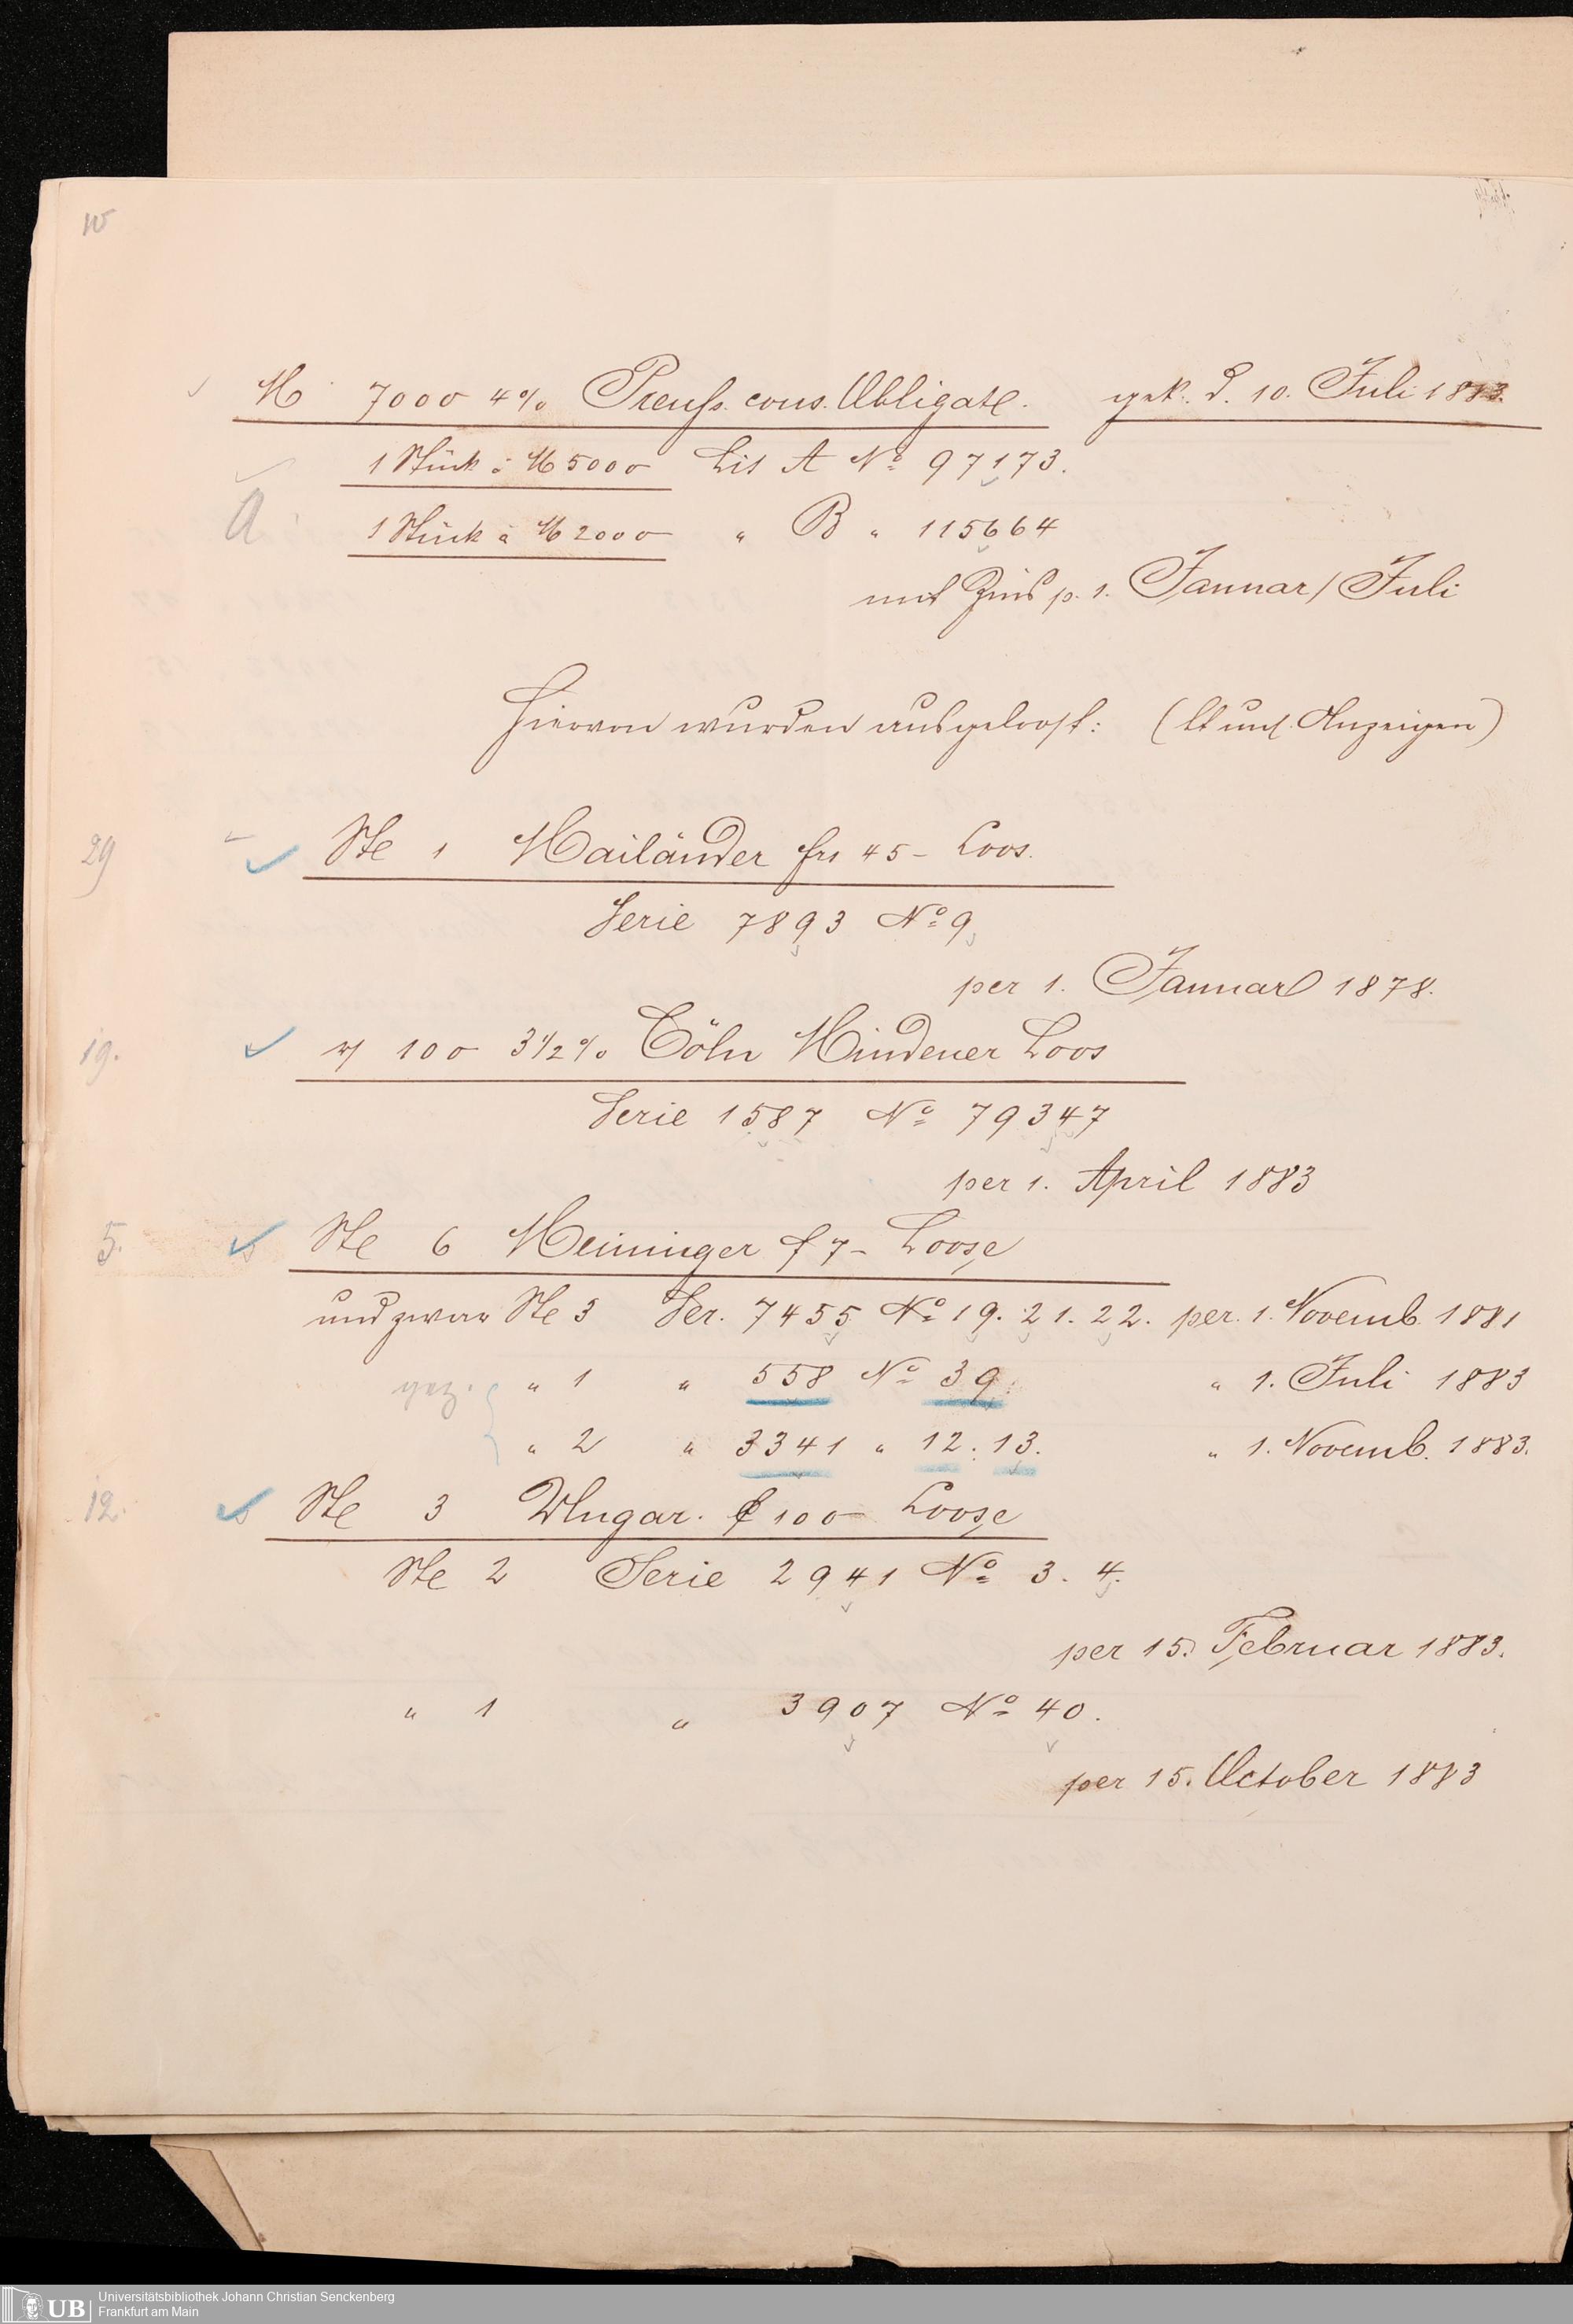 M 7000 4% Preuss. cons. Obligate. gek. d. 10. Juli 1883.
1 Stück à M 5000 Lit A No 97173.
a
1 Stück à M 2000 " B " 115664
mit Zins p. 1. Januar/Juli
Hiervon wurden ausgeloost: (lt uns. Anzeigen)
29 Ste 1 Mailänder frs 45- Loos.
Serie 7893 No 9
per 1. Januar 1878.
19. 100 3 1/2 % Cöln Mindener Loos
Serie 1587 No 79347
per 1. April 1883
5. Ste 6 Meininger f 7- Loose
und zwar Ste 3 Ser. 7455 No 19. 21. 22. per. 1. Novemb. 1881
gez. " 1 " 558 No 39 " 1. Juli 1883
" 2 " 3341 " 12. 13. " 1. Novemb. 1883.
12. Ste 3 Ungar. f 100 Loose
Ste 2 Serie 2941 No 3. 4.
per 15. Februar 1883.
" 1 " 3907 No 40.
per 15. October 1883
UB Universitätsbibliothek Johann Christian Senckenberg
Frankfurt am Main